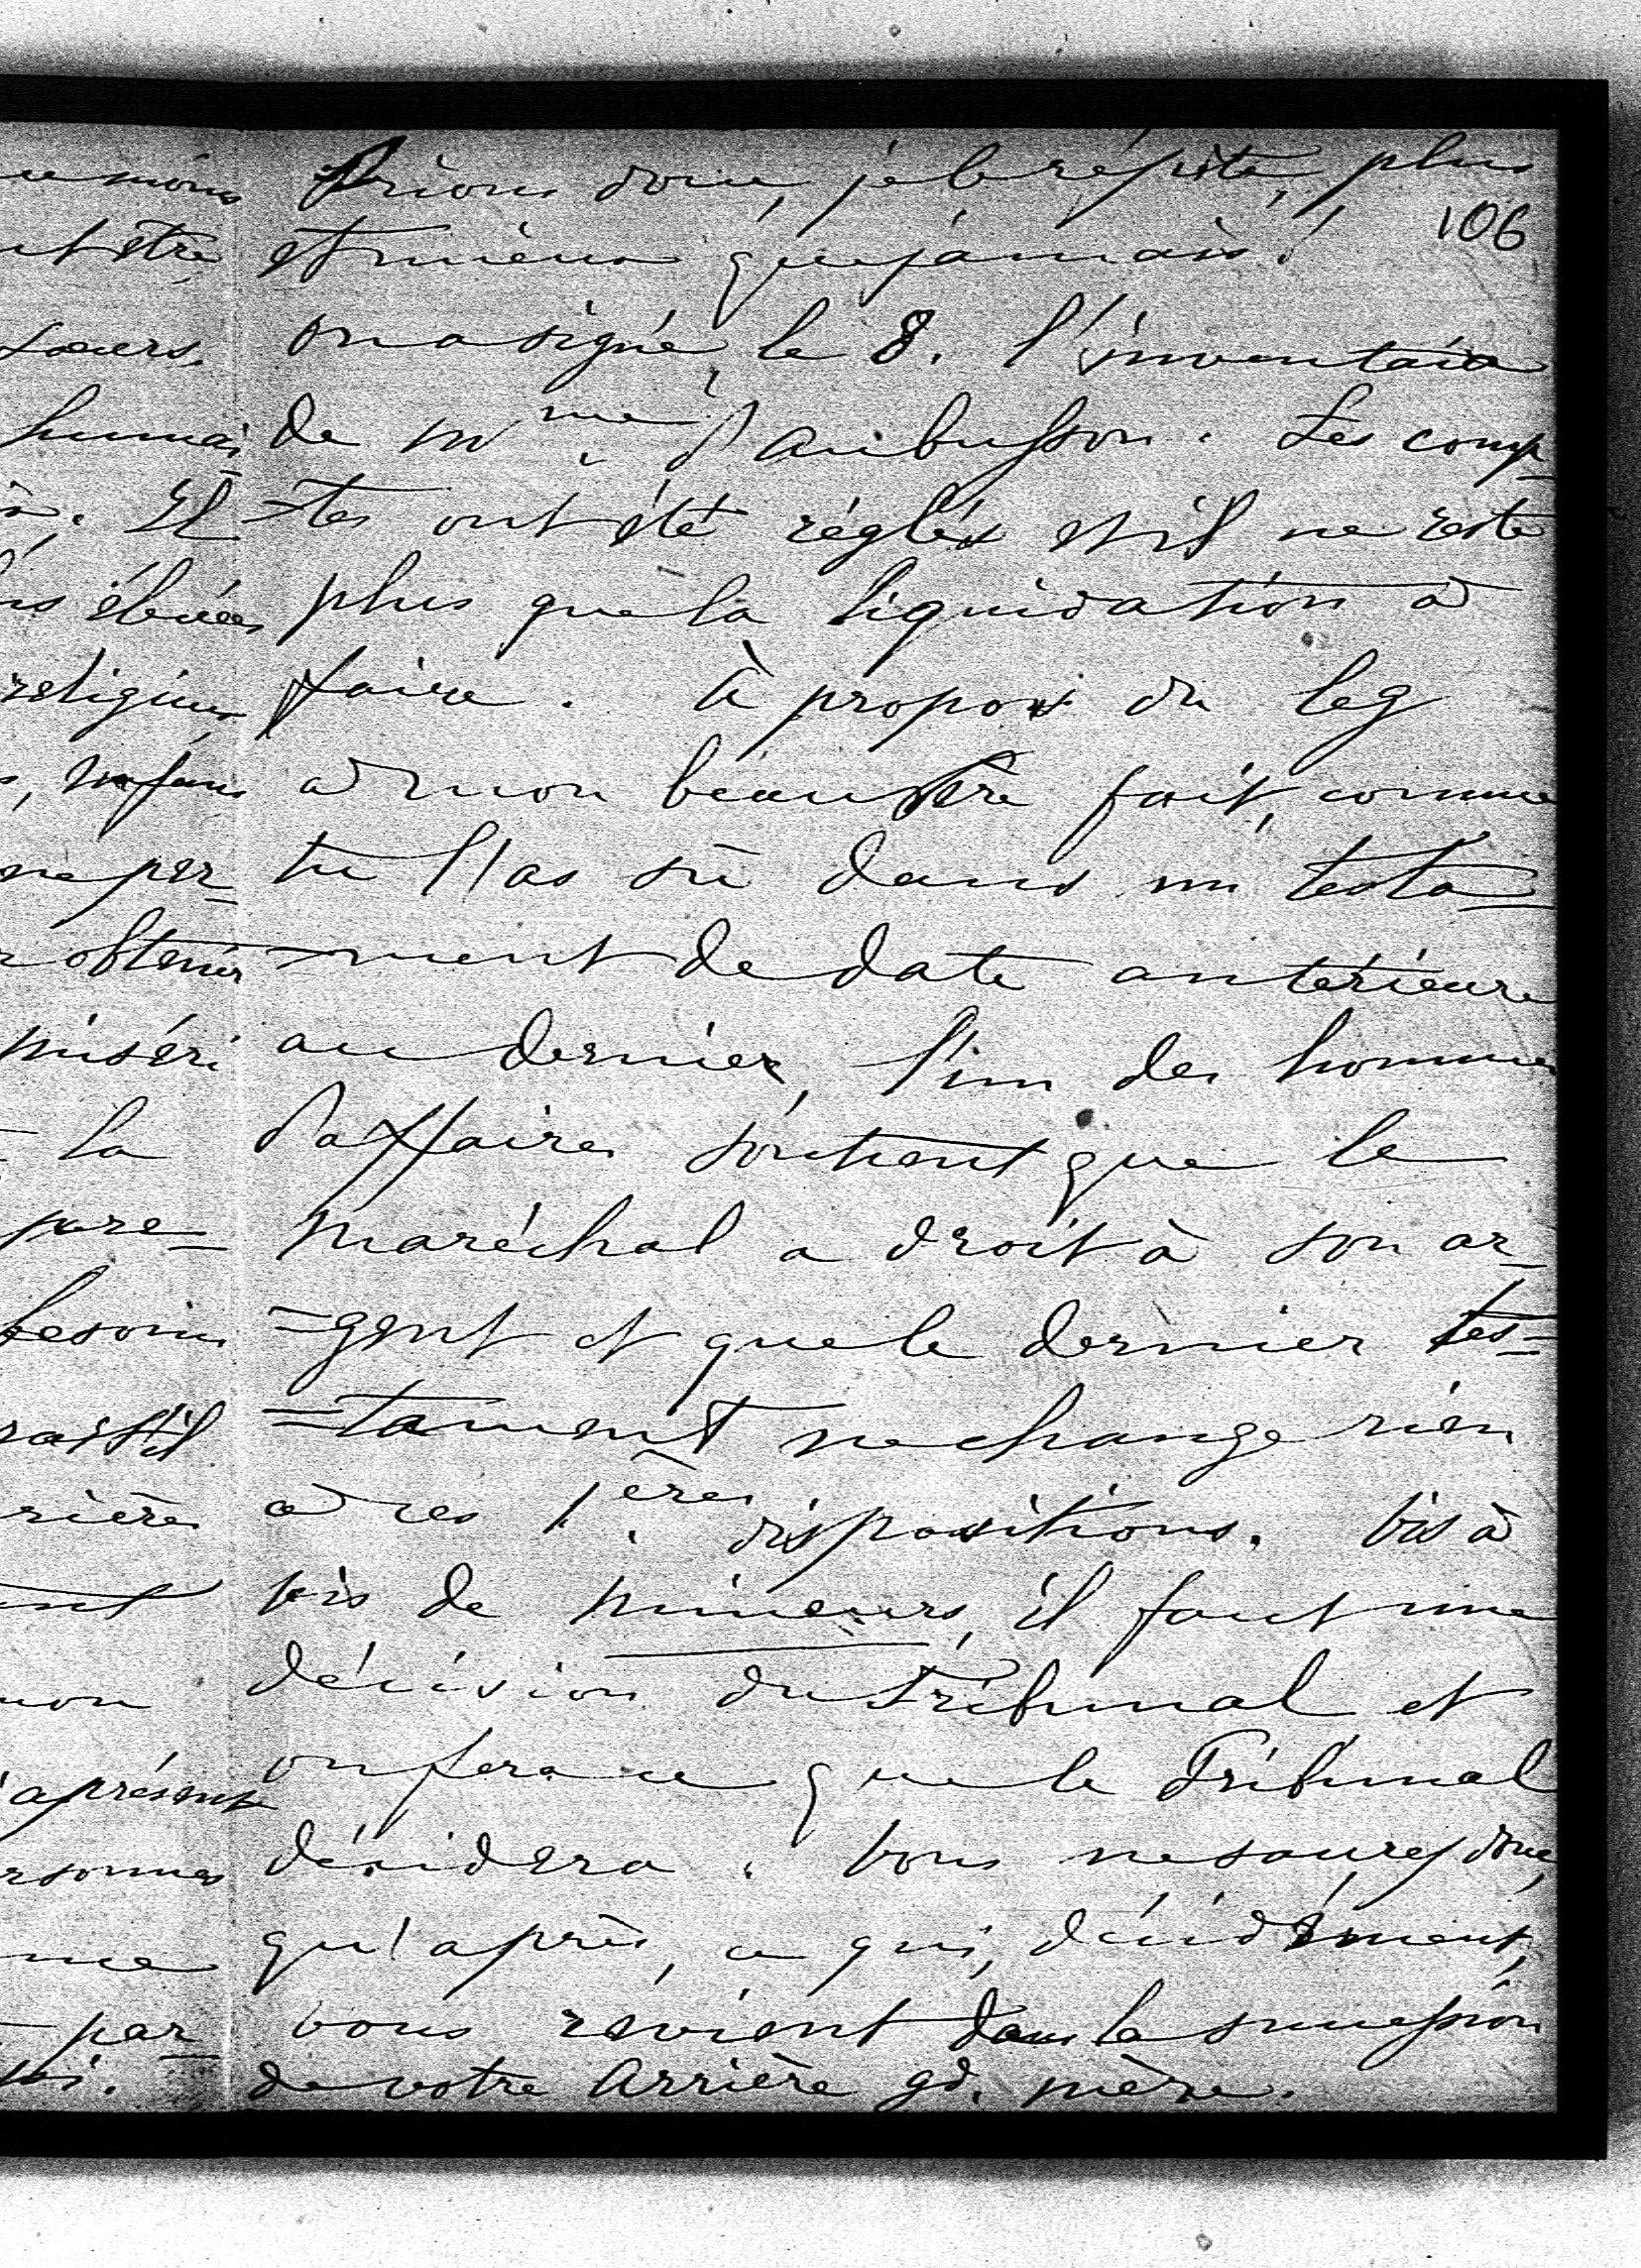 106
Prions donc, je le répète, plus
et mieux que jamais!
on a signé, le 8. l'inventaire
de Mme. d'Aubusson. Les comp-
=tes ont été réglés et il ne reste
plus que la liquidation à
faire. À propos du leg
à mon beau Père fait, comme
tu l'as sû dans un testa-
=ment de date antérieure
au dernier, l'un des hommes
d'affaires soutient que le
Maréchal a droit à son ar-
=gent et que le dernier tes-
=tament ne change rien
à ces 1.ères dispositions. Vis à
vis de mineurs, il faut une
décision du Tribunal et
on fera ce que le Tribunal
décidera. Vous ne saurez donc,
qu'après, ce qui, décidément,
vous revient dans la succession
de votre Arrière gd. mère.
ut être
soeurs.
humai
à. Il
religieux
ne per-
obtenir
miséri
la
besoins
rière
ent
mon
à présent
rsonnes
me
par-